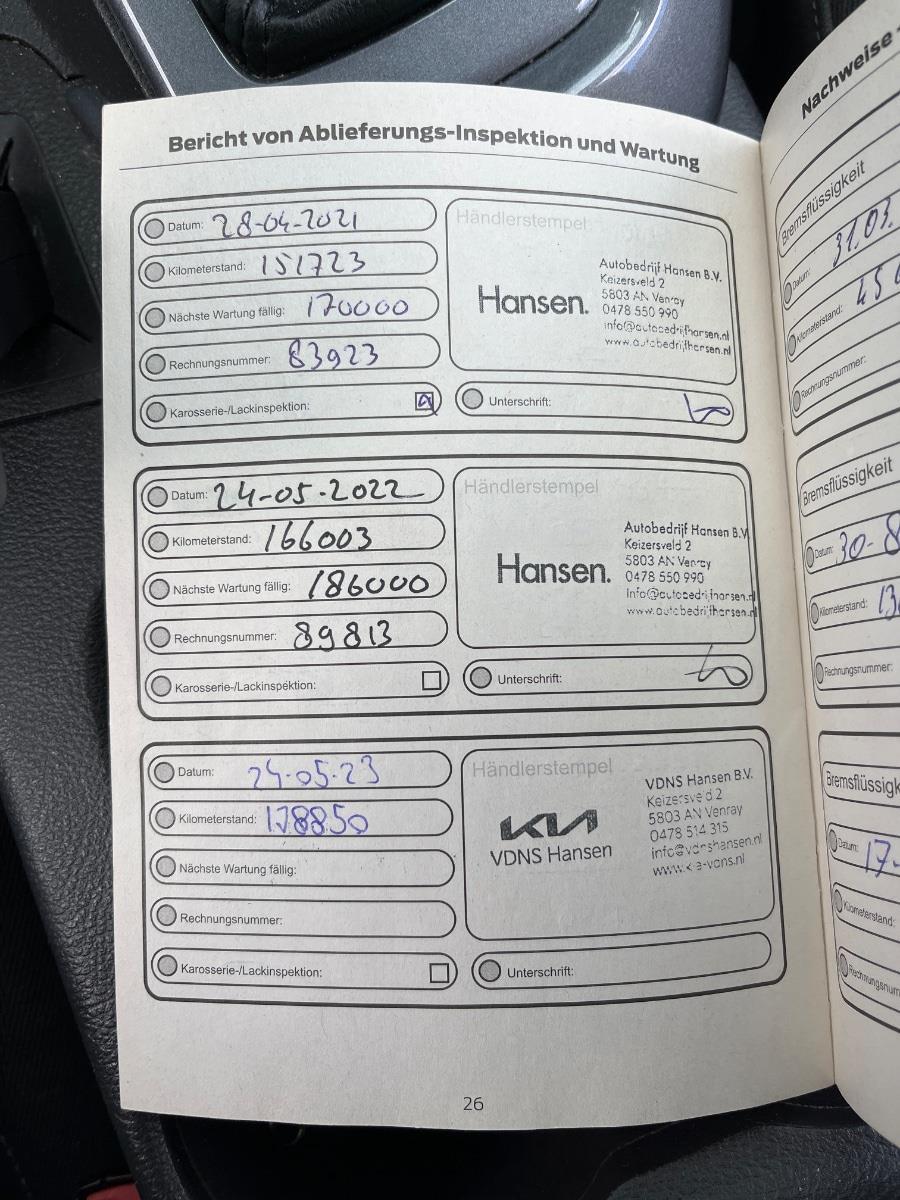 Bericht von Ablieferungs-Inspektion und Wartung
Datum: 28-04-2021
Kilometerstand: 151723
Nächste Wartung fällig: 170000
Rechnungsnummer: 83923
Karosserie-/Lackinspektion:
Händlerstempel
Hansen.
Autobedrijf Hansen B.V.
Keizersveld 2
5803 AN Venray
0478 550 990
info@autobedrijfhansen.nl
www.autobedrijfhansen.nl
Unterschrift:
Datum: 24-05-2022
Kilometerstand: 166003
Nächste Wartung fällig: 186000
Rechnungsnummer: 89813
Karosserie-/Lackinspektion:
Händlerstempel
Hansen.
Autobedrijf Hansen B.V.
Keizersveld 2
5803 AN Venray
0478 550 990
info@autobedrijfhansen.nl
www.autobedrijfhansen.nl
Unterschrift:
Datum: 24-05-23
Kilometerstand: 178850
Nächste Wartung fällig:
Rechnungsnummer:
Karosserie-/Lackinspektion:
Händlerstempel
KIA
VDNS Hansen
VDNS Hansen B.V.
Keizersveld 2
5803 AN Venray
0478 514 315
info@vdnshansen.nl
www.kia-vdns.nl
Unterschrift:
26
Nachweise
Bremsflüssigkeit
Datum: 31.03.
Kilometerstand: 450
Rechnungsnummer:
Bremsflüssigkeit
Datum: 30-8
Kilometerstand: 13
Rechnungsnummer:
Bremsflüssigk
Datum: 17-
Kilometerstand:
Rechnungsnum